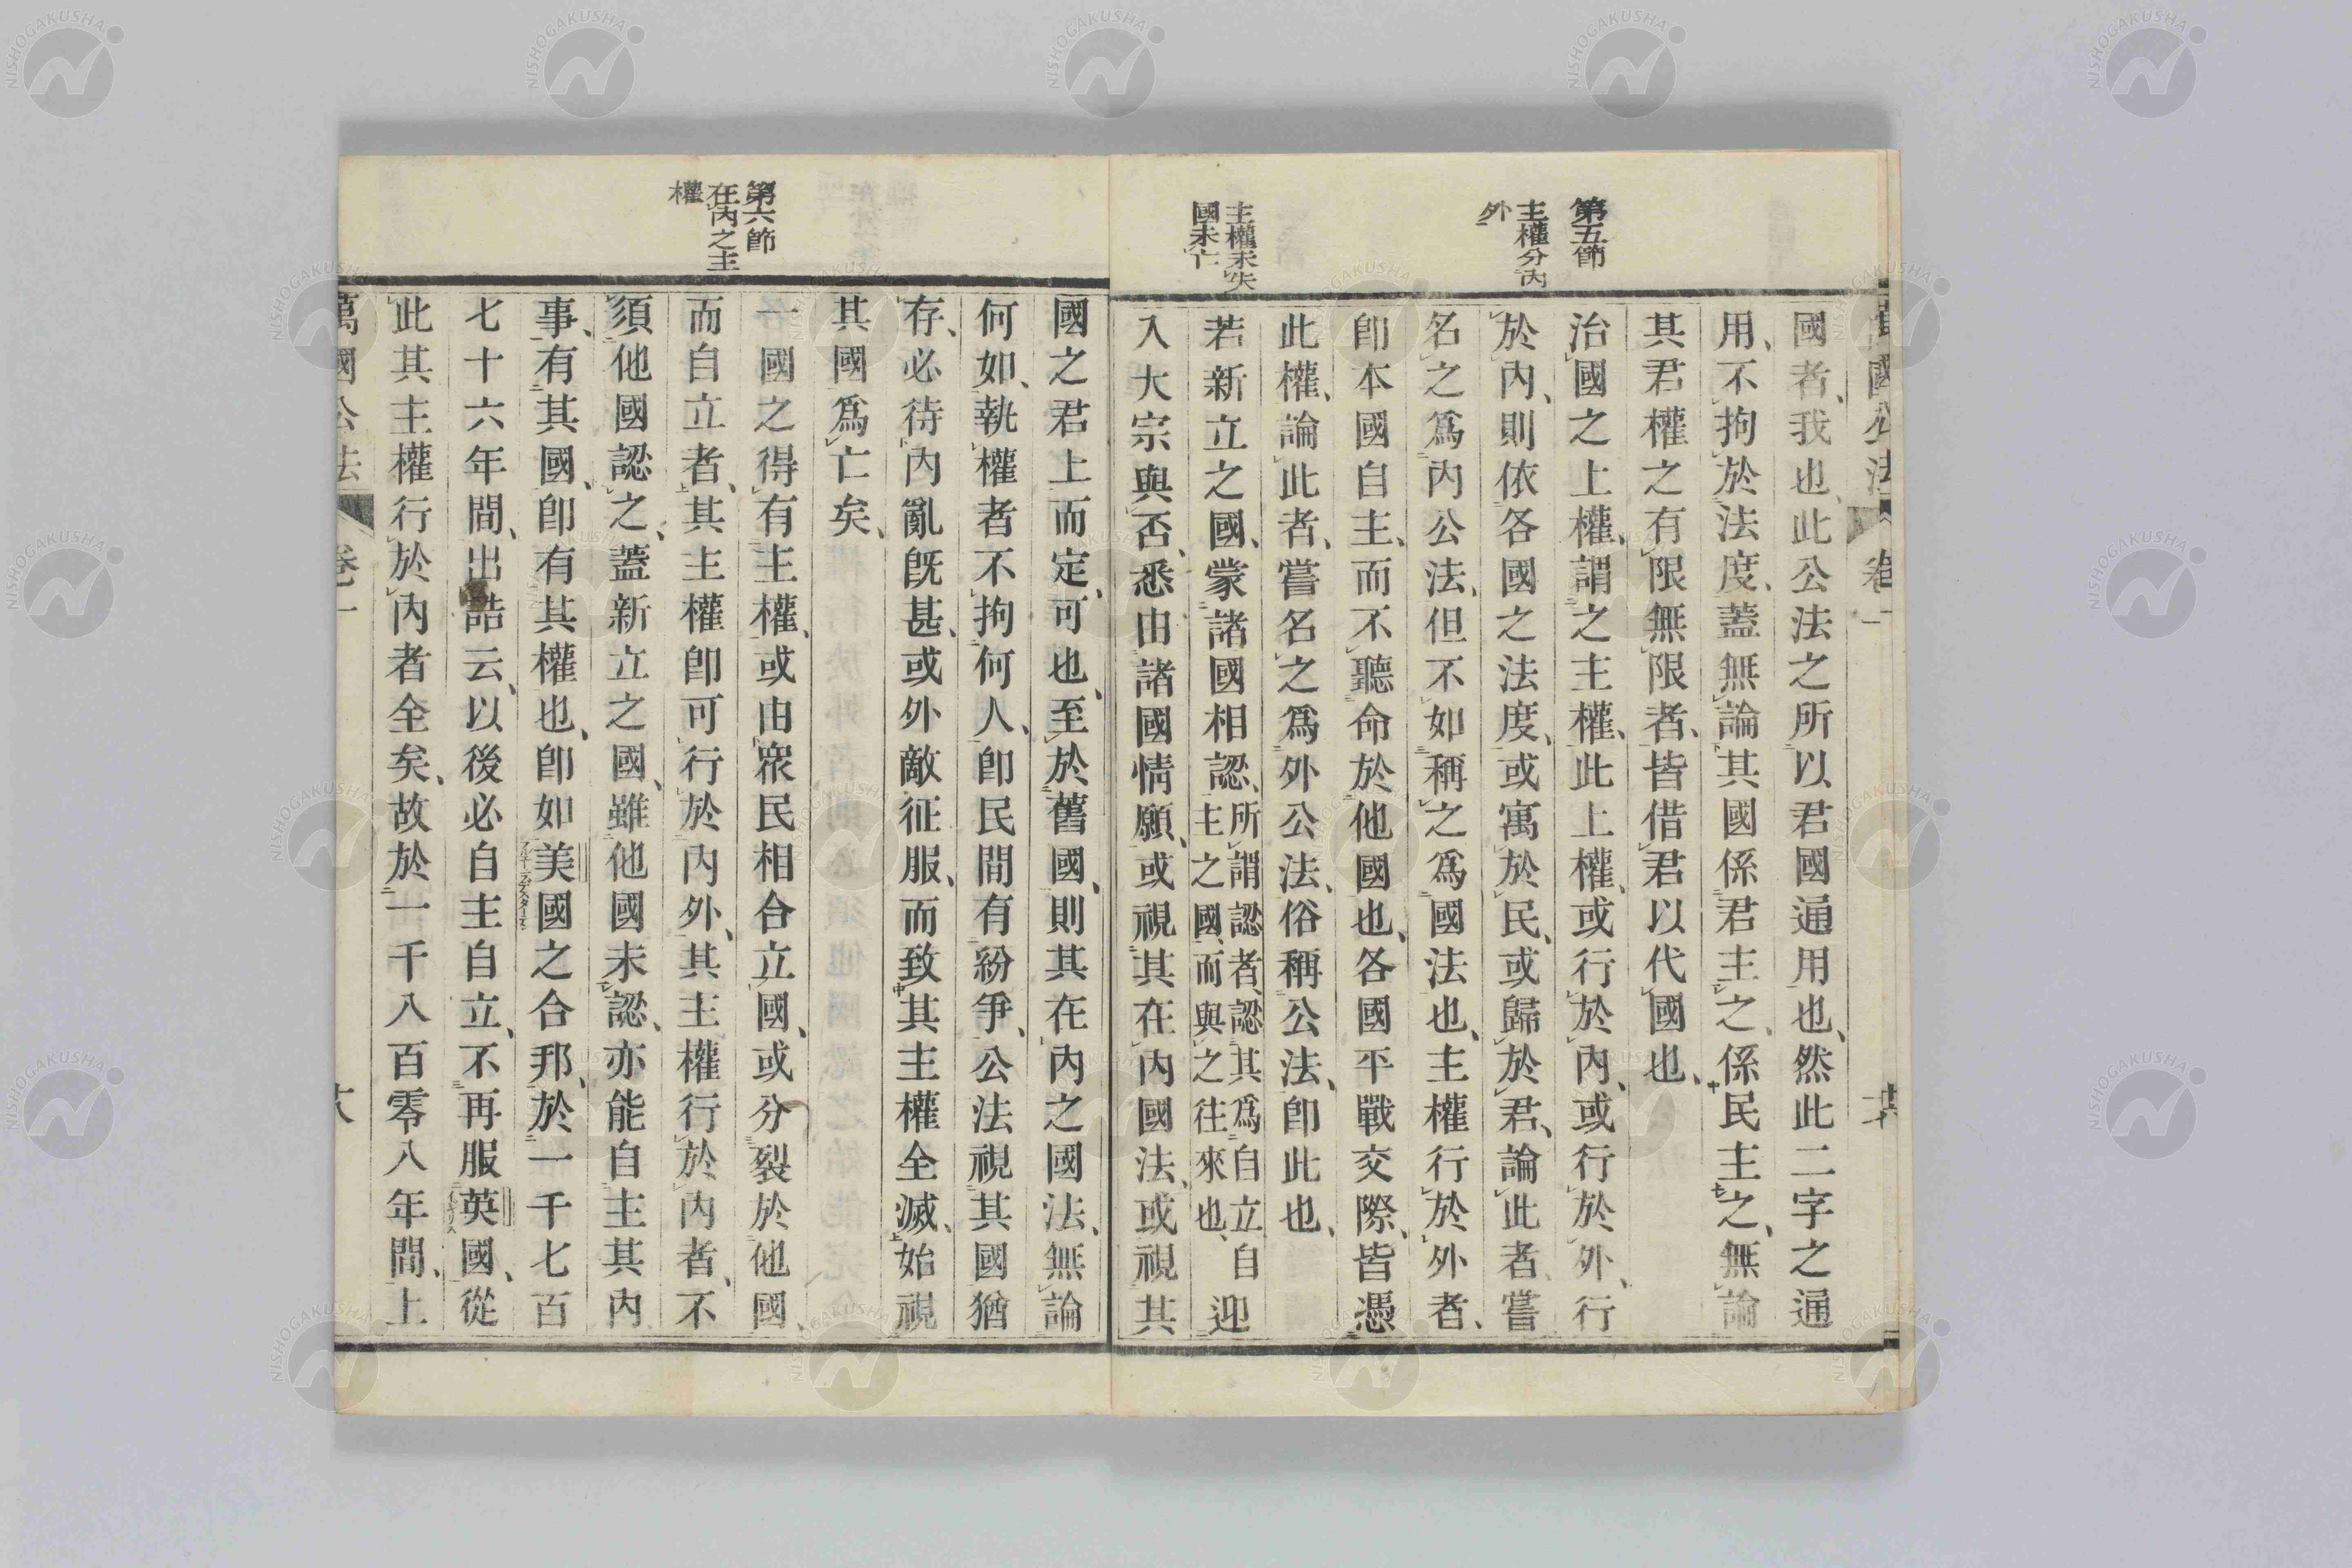 萬國公法 卷一
國者、我也、此公法之所以君國通用也、然此二字之通
用、不拘於法度、蓋無論其國係君主之、係民主之、無論
其君權之有限無限者、皆借君以代國也、
第五節
主權分內
外
治國之上權、謂之主權、此上權、或行於內、或行於外、行
於內、則依各國之法度、或寓於民、或歸於君、論此者、嘗
名之爲內公法、但不如稱之爲國法也、主權行於外者、
卽本國自主、而不聽命於他國也、各國平戰交際、皆憑
此權、論此者、嘗名之爲外公法、俗稱公法、卽此也、
主權未失
國未亡
若新立之國、蒙諸國相認、所謂認者、認其爲自立自主之國、而與之往來也、迎
入大宗與否、悉由諸國情願、或視其在內國法、或視其
國之君上而定、可也、至於舊國、則其在內之國法、無論
何如、執權者不拘何人、卽民間有紛爭、公法視其國猶
存、必待內亂旣甚、或外敵征服、而致其主權全滅、始視
其國爲亡矣、
第六節
在內之主
權
一國之得有主權、或由衆民相合立國、或分裂於他國、
而自立者、其主權卽可行於內外、其主權行於內者、不
須他國認之、蓋新立之國、雖他國未認、亦能自主其內
事、有其國、卽有其權也、卽如美國之合邦、於一千七百
七十六年間、出誥云、以後必自主自立、不再服英國、從
此其主權行於內者全矣、故於一千八百零八年間、上
萬國公法 卷一
NISHOGAKUSHA